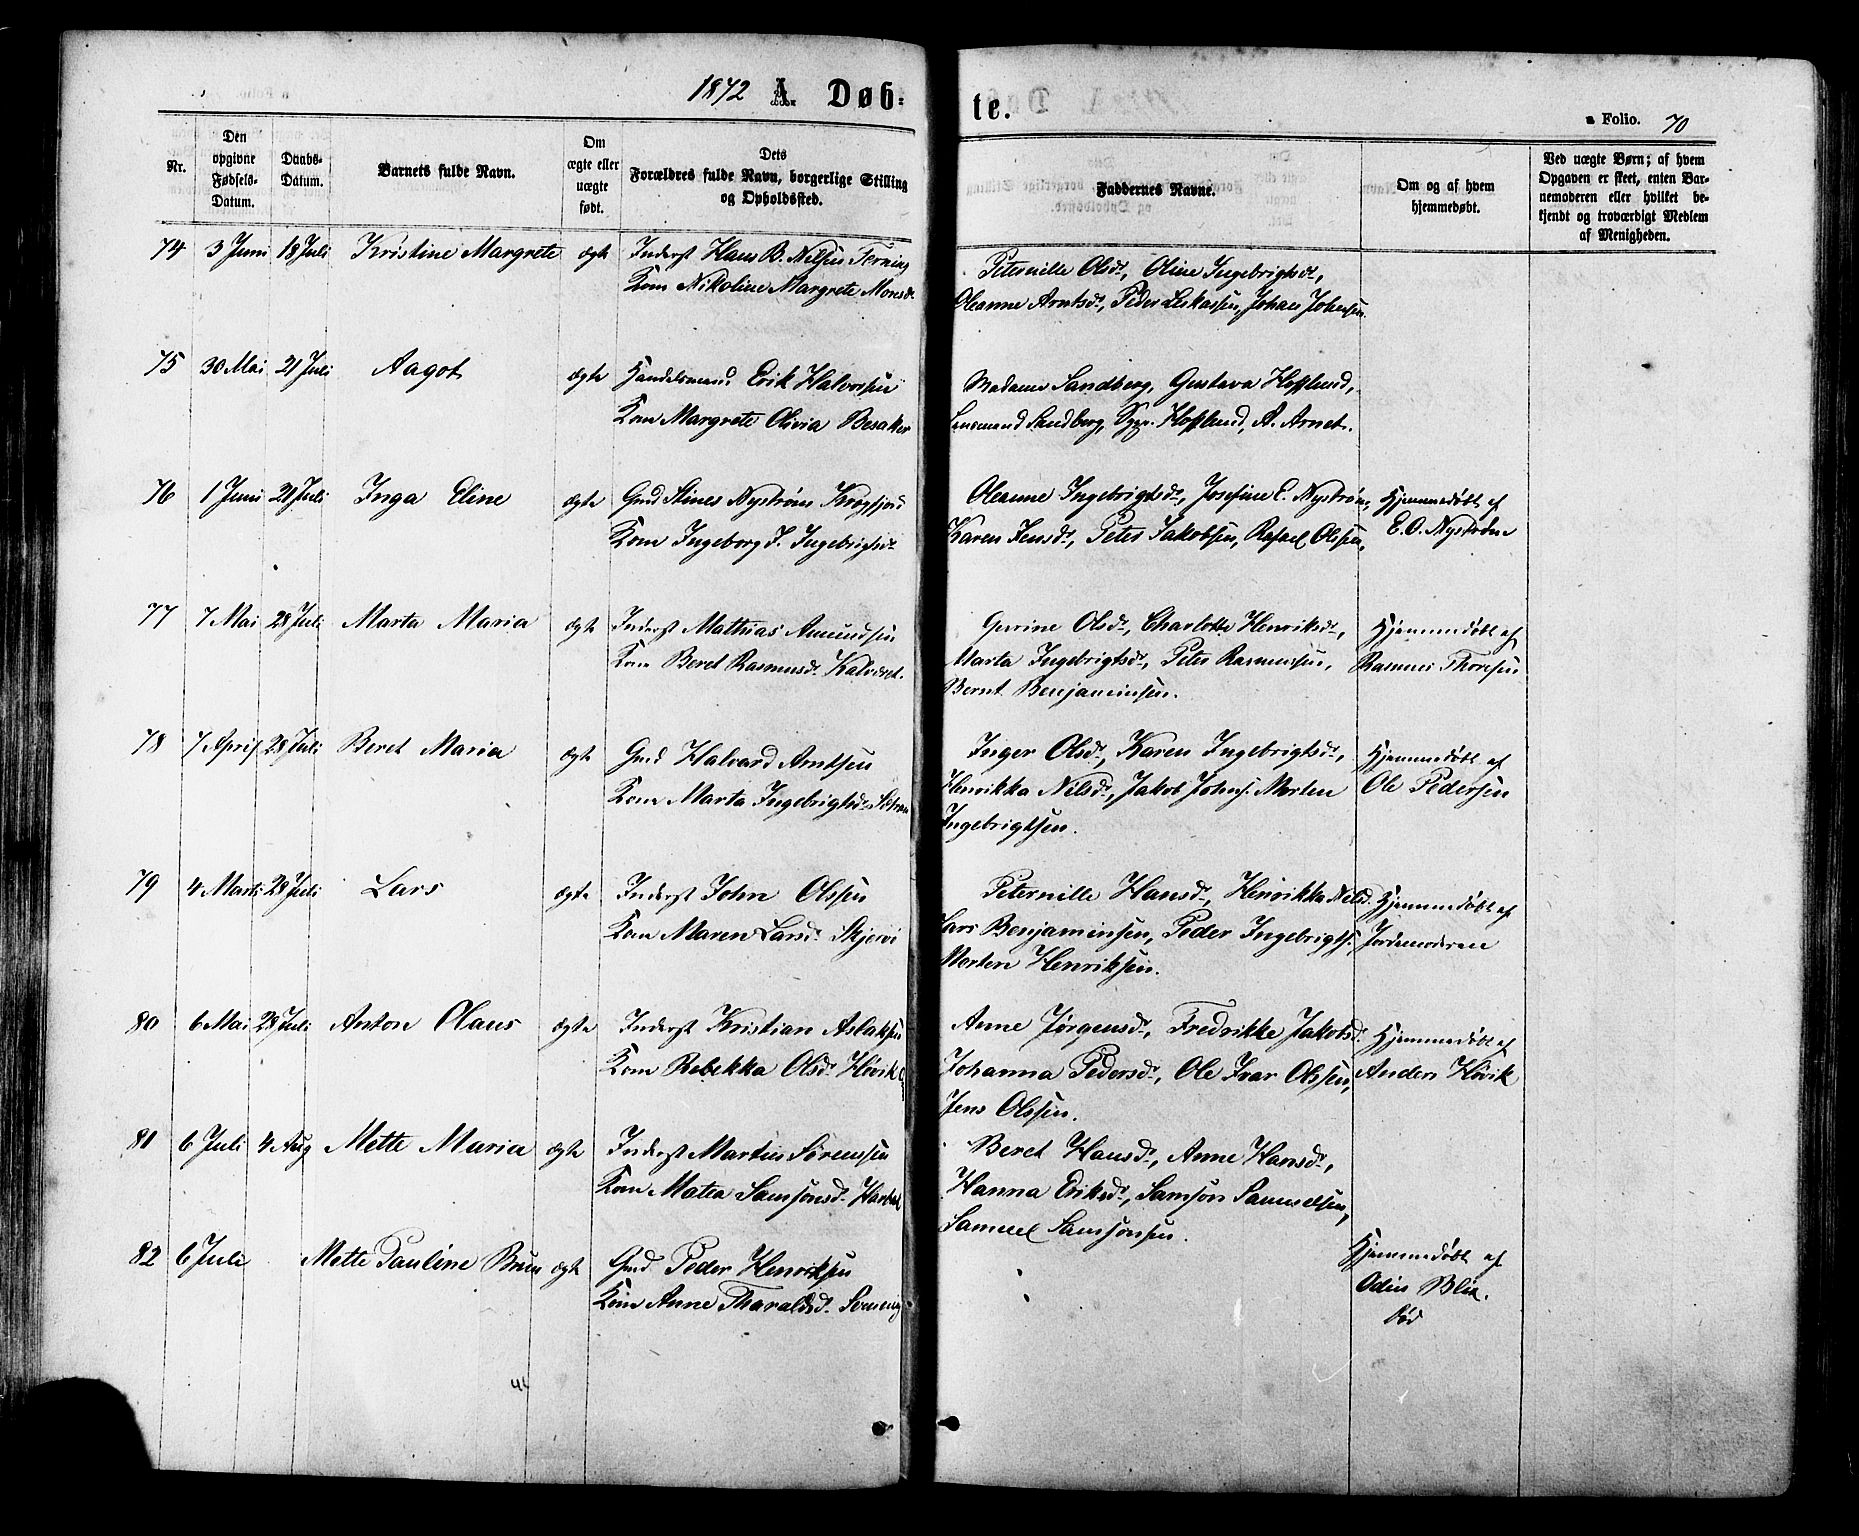 1872 A. Døb-
te.
a Folio. 70
Nr.
Den opgivne Fødsels-Datum.
Daabs-Datum.
Barnets fulde Navn.
Om ægte eller uægte født.
Dets Forældres fulde Navn, borgerlige Stilling og Opholdssted.
Faddernes Navne.
Om og af hvem hjemmedøbt.
Ved uægte Børn; af hvem Opgaven er skeet, enten Bar-nemoderen eller hvilket be-kjendt og troværdigt Medlem af Menigheden.
74 3 Juni 18 Juli Kristine Margrete ægte Inderst Hans B. Nilsen Terning
Kone Nikoline Margrete Monsdr.
Peternille Olsdr., Oline Ingebrigtsdr.,
Oleanne Arntsdr., Peder Eskassen, Johan Johnsen.
75 30 Mai 21 Juli Aagot ægte Handelsmand Erik Halvorsen
Kone Margrete Olivia Besaker
Madame Sandberg, Gustava Hofslund,
Lensmand Sandberg, Hofslund, A. Arnet.
76 1 Juni 21 Juli Inga Eline ægte Gmd Stines Nystrøm Krogfjord
Kone Ingeborg J. Ingebrigtsdr.
Oleanne Ingebrigtsdr., Josefine E. Nystrøm,
Karen Jensdr., Peter Jakobsen, Rafael Olssen,
Hjemmedøbt af
E. O. Nystrøm
77 7 Mai 28 Juli Marta Maria ægte Inderst Mathias Amundsen
Kone Beret Rasmusdr. Kalvøret.
Gurine Olsdr., Charlotte Henriksdr.,
Marta Ingebrigtsdr., Peter Rasmussen,
Bernt Benjaminsen.
Hjemmedøbt af
Rasmus Thoresen
78 7 April 28 Juli Beret Maria ægte Gmd Halvard Arntsen
Kone Marta Ingebrigtsdr.
Inger Olsdr., Karen Ingebrigtsdr.,
Henrikka Nilsdr., Jakob Johns. Morten
Ingebrigtsen.
Hjemmedøbt af
Ole Pedersen
79 4 Marts 28 Juli Lars ægte Inderst John Olssen
Kone Maren Larsdr. Skjervi
Peternille Hansdr., Henrikka Nilsd.
Lars Benjaminsen, Peder Ingebrigts.
Morten Henriksen.
Hjemmedøbt af
Jordemoderen
80 6 Mai 28 Juli Anton Olaus ægte Inderst Kristian Aslaksen
Kone Rebekka Olsdr. Høvik
Anne Jørgensdr., Fredrikke Jakobsd.
Johanna Pedersdr., Ole Ivar Olssen,
Jens Olssen.
Hjemmedøbt af
Anders Høvik
81 6 Juli 4 Aug Mette Maria ægte Inderst Martin Sørenssen
Kone Matea Samsonsdr. Harbak
Beret Hansdr., Anne Hansdr.,
Hanna Eriksdr., Samson Samuelsen,
Samuel Samsonsen.
82 6 Juli Mette Pauline Bruu ægte Gmd. Peder Henriksen
Kone Anne Tharaldsdr. Sumeng
Hjemmedøbt af
Odin Blix.
død